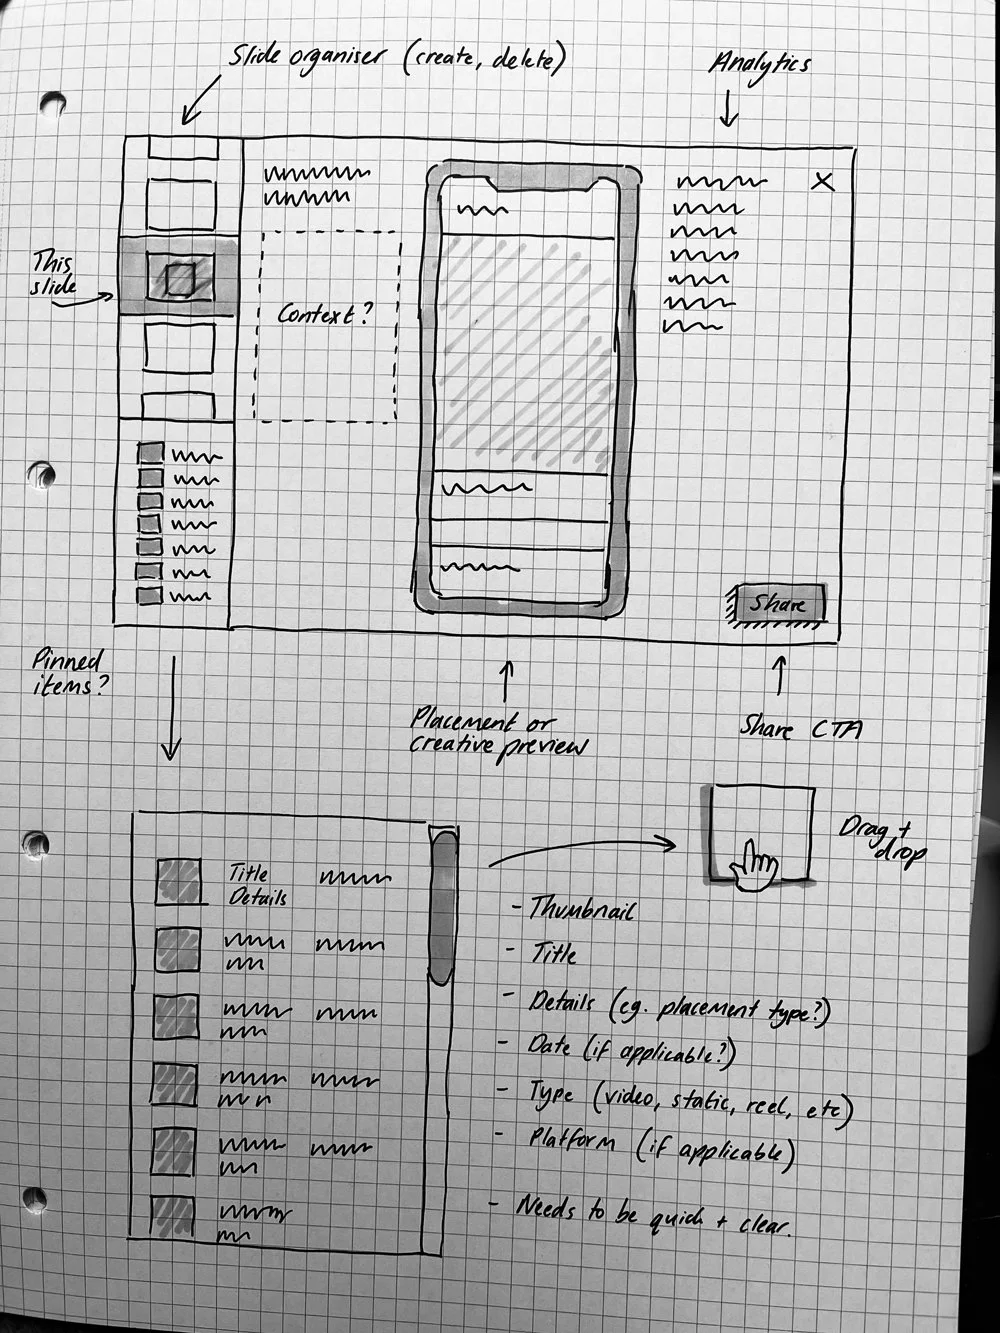 Slide organiser (create, delete)
Analytics
This
slide
Context?
Share
Pinned
items?
Placement or
creative preview
Share CTA
Drag +
drop
Title
Details
- Thumbnail
- Title
- Details (eg. placement type?)
- Date (if applicable?)
- Type (video, static, reel, etc)
- Platform (if applicable)
- Needs to be quick + clear.